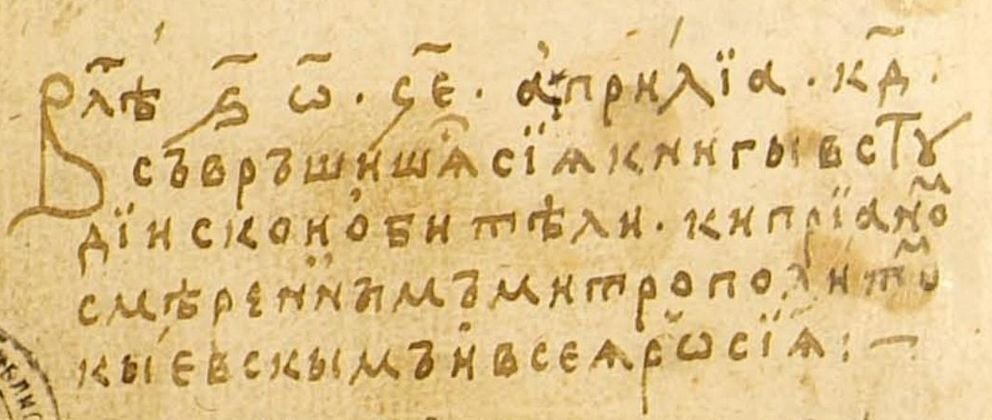 В лѣ҃ ҂ѕ҃ ѡ҃ · ч҃е · а҆прилїа · к҃д ·
съвръшишѧ сїѧ книгы в сту
дїискои ѻ҆бители · кипрїаномⷨ
смѣреннымъ митрополитоⷨ
кыевскымъ и҆ всеѧ рѡсїѧ :—